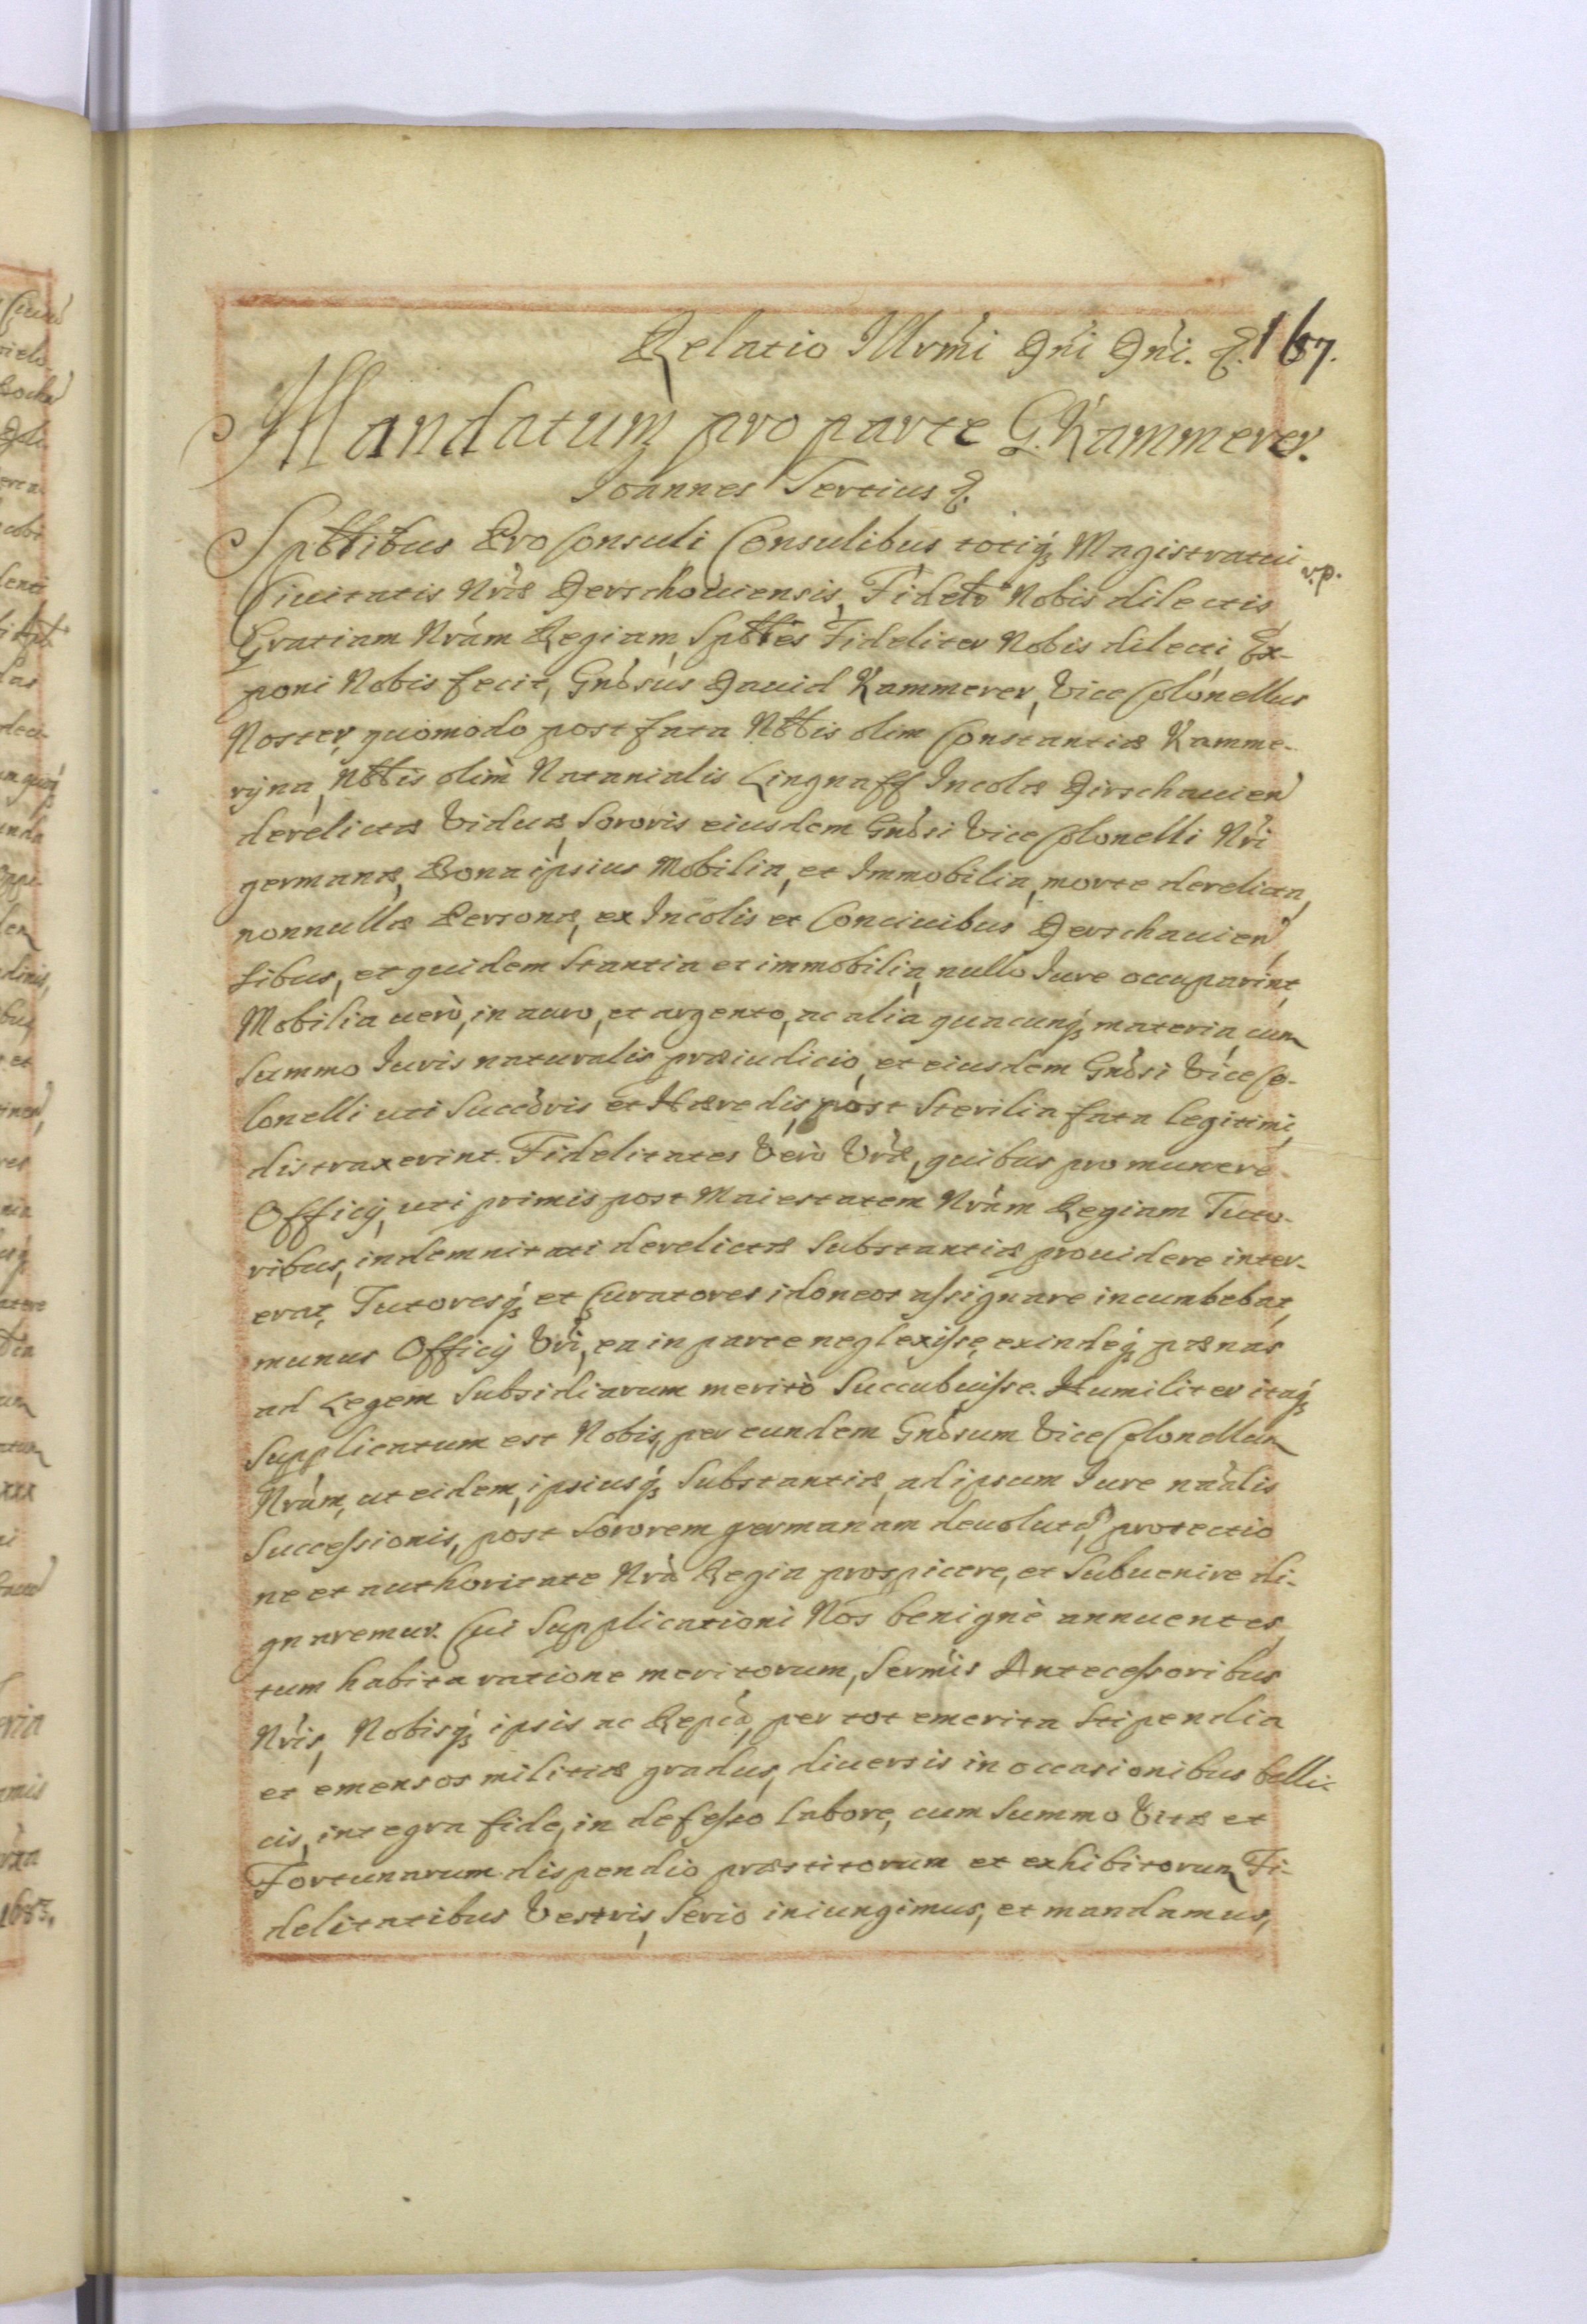 Relatio Illrmi Dni Dni. &. 167.
Mandatum pro parte G. Kammerer.
Joannes Tertius &.
Spttibus Proconsuli Consulibus totiq; Magistratui
Ciuitatis Nræ Derschouiensis, Fidelr Nobis dilectis, n.p.
Gratiam Nram Regiam, Spttes Fideliter Nobis dilecti, Ex-
poni Nobis fecit, Gnosus Dauid Kammerer, Vice Colonellus
Noster, quomodo post fata Nttis olim Constantiæ Kamme-
ryna, Nttis olim Natanialis Lingnaff Incolæ Dirschauien
derelictæ Viduæ, Sororis eiusdem Gnosi Vice Colonelli Nri
germanæ, Bona ipsius Mobilia, et Immobilia, morte derelicta,
nonnullæ Personæ, ex Incolis et Conciuibus Derschauien
sibus, et quidem Stantia et immobilia, nullo Jure occuparint,
Mobilia uerò, in auro, et argento, ac alia quacunq; materia, cum
Summo Juris naturalis præiudicio, et eiusdem Gnosi Vice Co-
lonelli uti Succoris et Hæredis, post Sterilia fata legitimi,
distraxerint. Fidelitates Verò Vræ, quibus pro munere
Officij, uti primis post Maiestatem Nram Regiam Tuto-
ribus, indemnitati derelictæ Substantiæ prouidere inter-
erat, Tutoresq; et Curatores idoneos assignare incumbebat,
munus Officij Vri, ea in parte neglexisse, exindeq; pænas
ad Legem Subsidiarum meritò Succubuisse. Humiliter itaq;
Supplicatum est Nobis, per eundem Gnosum Vice Colonellum
Nrum, ut eidem, ipsiusq; Substantiæ, ad ipsum Jure naalis
Successionis, post Sororem germanam deuolutæ, protectio
ne et authoritate Nra Regia prospicere, et Subuenire di-
gnaremur. Cui Supplicationi Nos benignè annuentes,
tum habita ratione meritorum, Sermis Antecessoribus
Nris, Nobisq; ipsis ac Reipca, per tot emerita Stipendia
et emensos militiæ gradus, diuersis in occasionibus belli-
cis, integra fide, indefesso labore, cum Summo Vitæ et
Fortunarum dispendio præstitorum et exhibitorum, Fi-
delitatibus Vestris, Serio iniungimus, et mandamus,